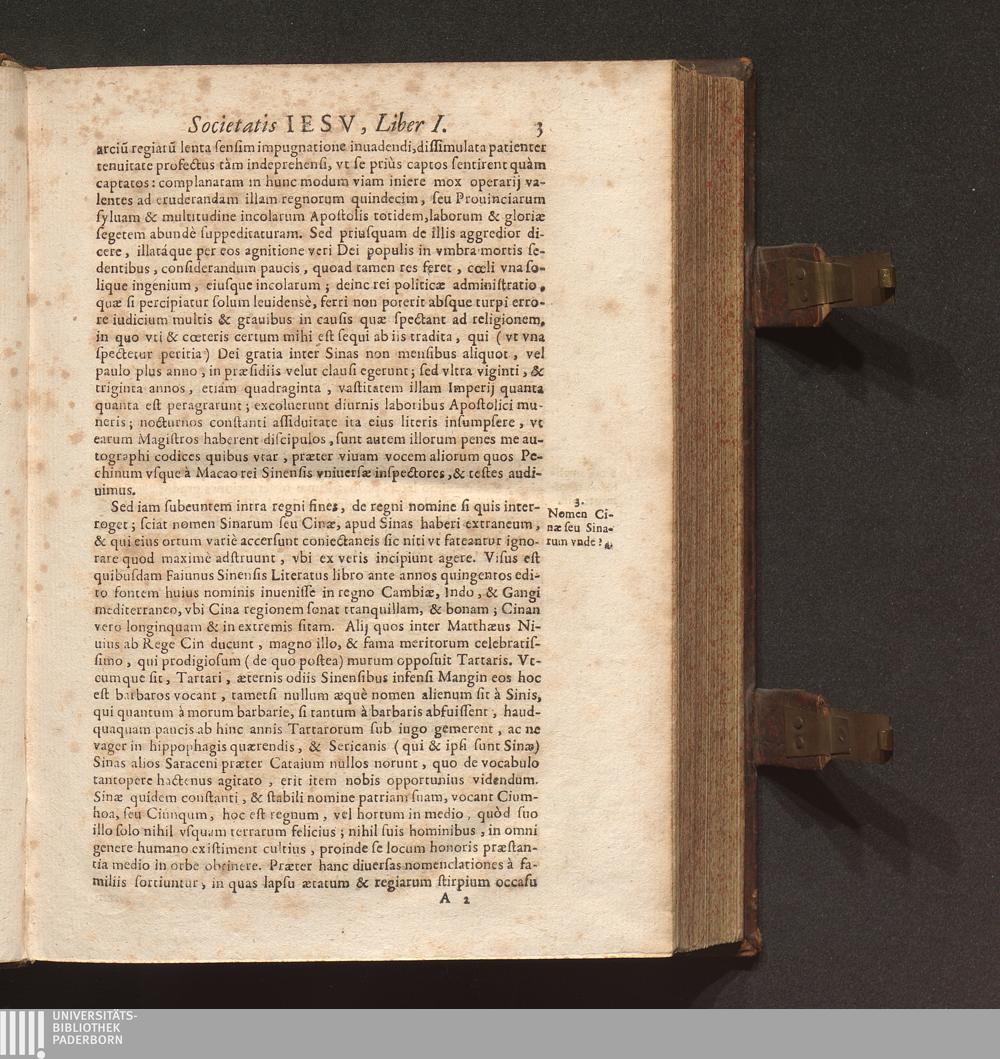 Societatis IESV, Liber I. 3
arciū regiarū lenta sensim impugnatione inuadendi, dissimulata patienter
tenuitate profectus tàm indeprehensi, vt se priùs captos sentirent quàm
captatos: complanatam in hunc modum viam iniere mox operarij va-
lentes ad eruderandam illam regnorum quindecim, seu Prouinciarum
syluam & multitudine incolarum Apostolis totidem, laborum & gloriæ
segetem abundè suppeditaturam. Sed priusquam de illis aggredior di-
cere, illatáque per eos agnitione veri Dei populis in vmbra mortis se-
dentibus, considerandum paucis, quoad tamen res feret, cœli vna so-
lique ingenium, eiusque incolarum; deinc rei politicæ administratio,
quæ si percipiatur solum leuidensè, ferri non poterit absque turpi erro-
re iudicium multis & grauibus in causis quæ spectant ad religionem,
in quo vti & cœteris certum mihi est sequi ab iis tradita, qui (vt vna
spectetur peritia) Dei gratia inter Sinas non mensibus aliquot, vel
paulo plus anno, in præsidiis velut clausi egerunt; sed vltra viginti, &
triginta annos, etiam quadraginta, vastitatem illam Imperij quanta
quanta est peragrarunt; excoluerunt diurnis laboribus Apostolici mu-
neris; nocturnos constanti assiduitate ita eius literis insumpsere, vt
earum Magistros haberent discipulos, sunt autem illorum penes me au-
tographi codices quibus vtar, præter viuam vocem aliorum quos Pe-
chinum vsque à Macao rei Sinensis vniuersæ inspectores, & testes audi-
uimus.
Sed iam subeuntem intra regni fines, de regni nomine si quis inter-
roget; sciat nomen Sinarum seu Cinæ, apud Sinas haberi extraneum,
& qui eius ortum variè accersunt coniectaneis sic niti vt fateantur igno-
rare quod maximè adstruunt, vbi ex veris incipiunt agere. Visus est
quibusdam Faiunus Sinensis Literatus libro ante annos quingentos edi-
to fontem huius nominis inuenisse in regno Cambiæ, Indo, & Gangi
mediterraneo, vbi Cina regionem sonat tranquillam, & bonam; Cinan
vero longinquam & in extremis sitam. Alij quos inter Matthæus Ni-
uius ab Rege Cin ducunt, magno illo, & fama meritorum celebratis-
simo, qui prodigiosum (de quo postea) murum opposuit Tartaris. Vt-
cumque sit, Tartari, æternis odiis Sinensibus infensi Mangin eos hoc
est barbaros vocant, tametsi nullum æquè nomen alienum sit à Sinis,
qui quantum à morum barbarie, si tantum à barbaris abfuissent, haud-
quaquam paucis ab hinc annis Tartarorum sub iugo gemerent, ac ne
vager in hippophagis quærendis, & Sericanis (qui & ipsi sunt Sinæ)
Sinas alios Saraceni præter Cataium nullos norunt, quo de vocabulo
tantopere hactenus agitato, erit item nobis opportunius videndum.
Sinæ quidem constanti, & stabili nomine patriam suam, vocant Cium-
hoa, seu Ciunqum, hoc est regnum, vel hortum in medio, quòd suo
illo solo nihil vsquam terrarum felicius; nihil suis hominibus, in omni
genere humano existiment cultius, proinde se locum honoris præstan-
tia medio in orbe obtinere. Præter hanc diuersas nomenclationes à fa-
miliis sortiuntur, in quas lapsu ætatum & regiarum stirpium occasu
A 2
3.
Nomen Ci-
næ seu Sina-
rum vnde?
UNIVERSITÄTS-
BIBLIOTHEK
PADERBORN